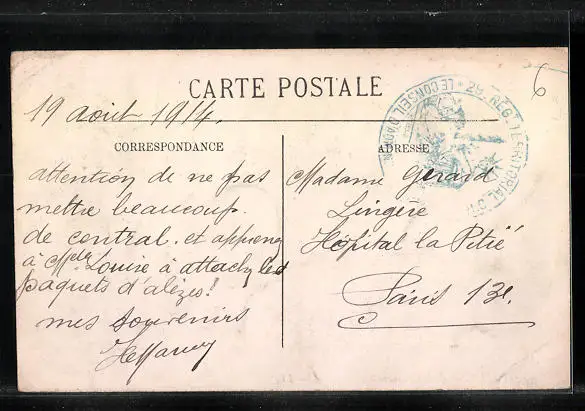 CARTE POSTALE
19 août 1914.
CORRESPONDANCE
attention de ne pas
mettre beaucoup
de central. et apprenez
à Melle Louise à attacher les
paquets d'alèzes!
mes souvenirs
ADRESSE
Madame Gérard
Lingère
Hôpital la Pitié
Paris 13e.
29 REGt TERRITORIAL D'IN
LE CONSEIL D'ADMIN
6